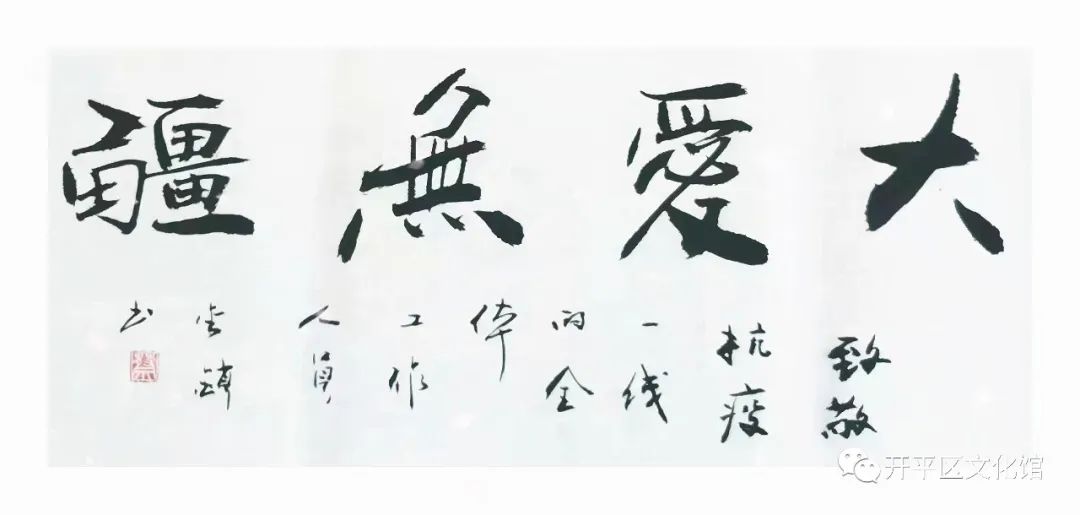 大愛無疆
致敬
抗疫
一线
的全
体
工作
人员
书
开平区文化馆